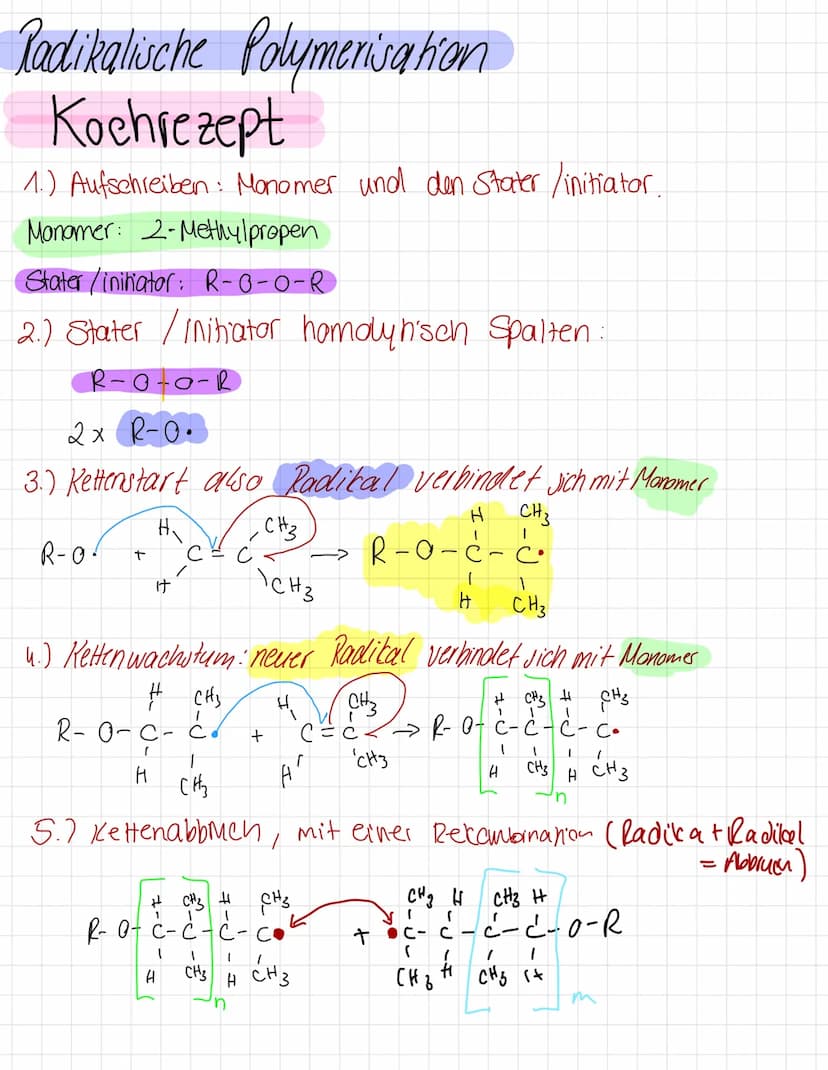 Radikalische Polymerisation
Kochrezept
1.) Aufschreiben: Monomer und den Stater/initiator.
Monomer: 2-Methylpropen
Stater/initiator: R-O-O-R
2.) Stater/initiator homolytisch Spalten:
R-O+O-R
2x R-O•
3.) Kettenstart also Radikal verbindet sich mit Monomer
H CH3 H CH3
R-O• + C = C → R-O-C-C•
H CH3 H CH3
4.) Kettenwachstum: neuer Radikal verbindet sich mit Monomer
H CH3 H CH3 H CH3 H CH3
R-O-C-C• + C=C → R-O-C-C-C-C•
H CH3 H CH3 H CH3 H CH3
n
5.) Kettenabbruch, mit einer Rekombination (Radika+Radikal
= Abbruch)
H CH3 H CH3 CH3 H CH3 H
R-O-C-C-C-C• + •C-C-C-C-O-R
H CH3 H CH3 CH3 H CH3 H
n m